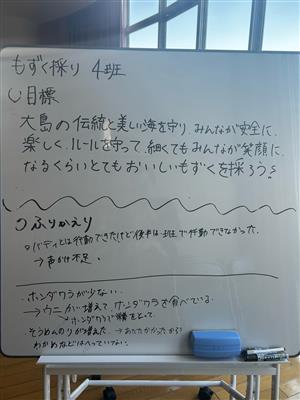 もずく採り 4班
○目標
大島の伝統と美しい海を守り、みんなが安全に、
楽しく、ルールを守って、細くてもみんなが笑顔に
なるくらいとてもおいしいもずくを採ろう!
○ふりかえり
○バディとは行動できたけど後半は班で行動できなかった。
→声かけ不足。
・ホンダワラが少ない。
→ウニが増えて、ホンダワラを食べている。
そうめんのりが増えた。→あたたかかったから?
わかめなどはへっていない。